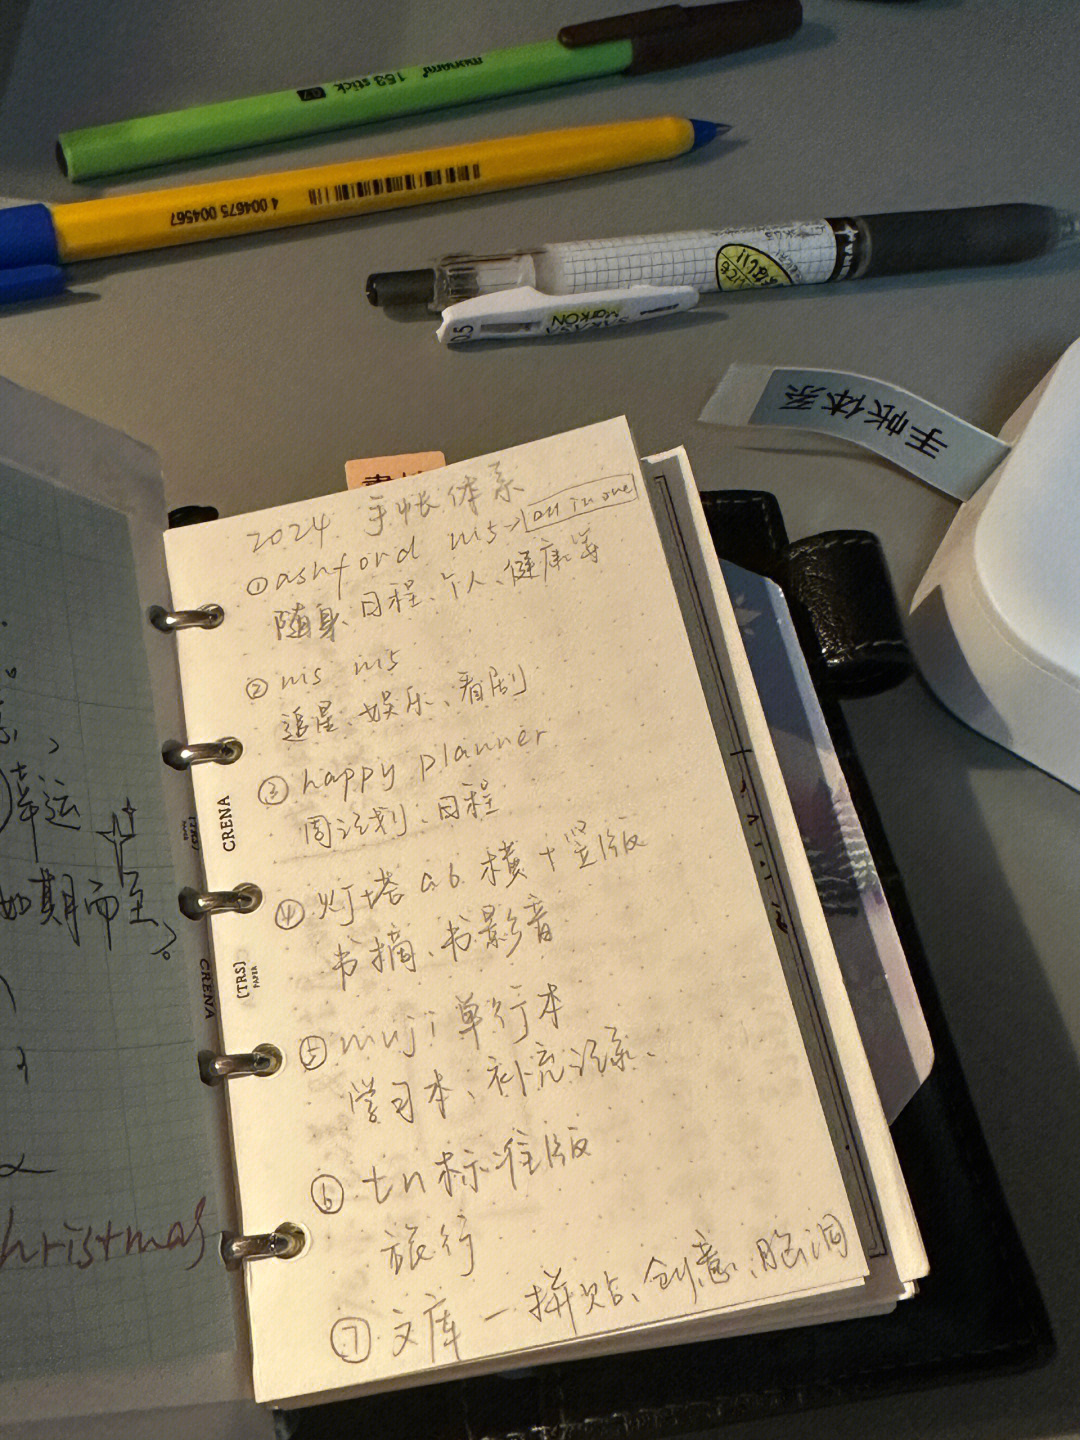 monami 153 stick 0.7
4 004675 004567
0.5
SARASA
MarkON
ZEBRA
手帐体系
2024 手帐体系
①ashford m5→all in one
随身、日程、个人、健康等
② ms m5
追星、娱乐、看剧
③ happy planner
周计划、日程
④ 灯塔 a6 横+竖版
书摘、书影音
⑤ muji 单行本
学习本、补充记录、
⑥ tn标准版
旅行
⑦ 文库 — 拼贴、创意、脑洞
CRENA
[TRS]
PAPER
CRENA
幸运
如期而至。
christmas